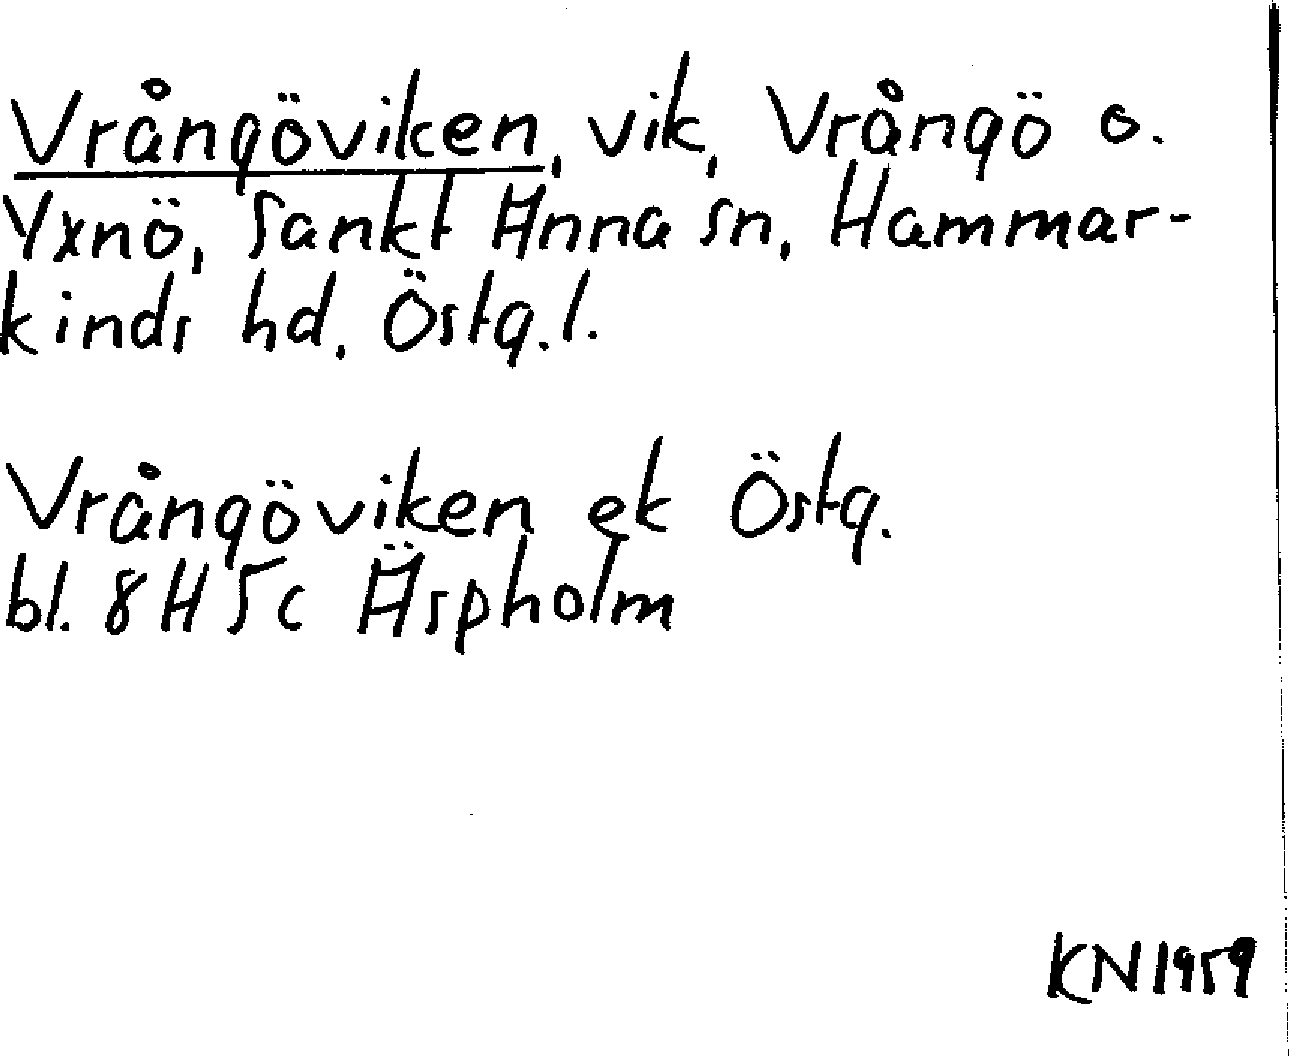 Vrångöviken, vik, Vrångö o.
Yxnö, Sankt Anna sn, Hammar-
kinds hd, Östg.l.
Vrångöviken ek Östg.
bl. 8H5c Äspholm
KN1959